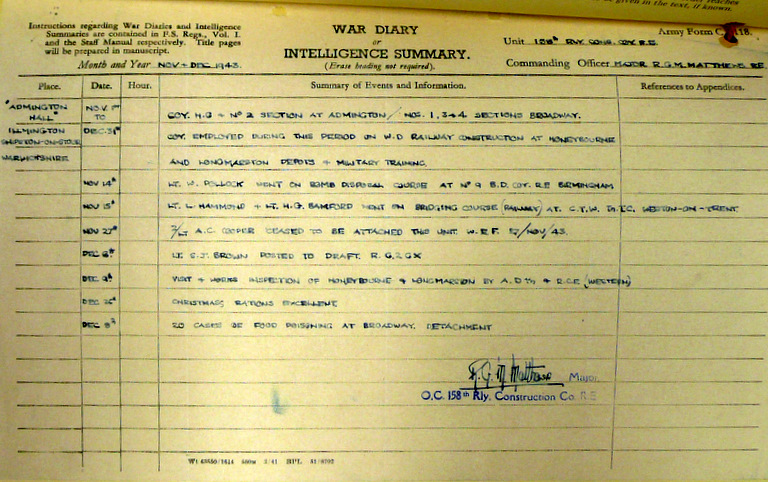 given in the text, if known.
Instructions regarding War Diaries and Intelligence
Summaries are contained in F.S. Regs., Vol. I.
and the Staff Manual respectively. Title pages
will be prepared in manuscript.
Month and Year NOV + DEC 1943.
WAR DIARY
or
INTELLIGENCE SUMMARY.
(Erase heading not required).
Army Form C. 118.
Unit 158th RLY. CONS. COY. R.E.
Commanding Officer MAJOR R.G.M. MATTHEWS RE.
Place. Date. Hour. Summary of Events and Information. References to Appendices.
"ADMINGTON HALL" NOV. 1st TO COY. H.Q + No 2 SECTION AT ADMINGTON / NOS. 1, 3+4 SECTIONS BROADWAY.
ILMINGTON DEC. 31st COY. EMPLOYED DURING THIS PERIOD ON W.D RAILWAY CONSTRUCTION AT HONEYBOURNE
SHIPSTON-ON-STOUR
WARWICKSHIRE AND LONGMARSTON DEPOTS + MILITARY TRAINING.
NOV 14th LT. W. POLLOCK WENT ON BOMB DISPOSAL COURSE AT No 9 B.D. COY. R.E BIRMINGHAM
NOV 15th LT. L. HAMMOND + LT. H.G. BAMFORD WENT ON BRIDGING COURSE (RAILWAY) AT C.T.W. -ON-TRENT.
NOV 27th 2/LT A.C. COOPER CEASED TO BE ATTACHED THIS UNIT. W.E.F. /NOV/43.
DEC 6th LT. S.J. BROWN POSTED TO DRAFT. R.G.2GX
DEC 9th VISIT + WORKS INSPECTION OF HONEYBOURNE + LONGMARSTON BY A.D Tn + R.C.E (WESTERN)
DEC 26th CHRISTMAS; RATIONS EXCELLENT.
DEC 8th 20 CASES OF FOOD POISONING AT BROADWAY. DETACHMENT
R.G.M. Matthews Major.
O.C. 158th Rly. Construction Co. R.E